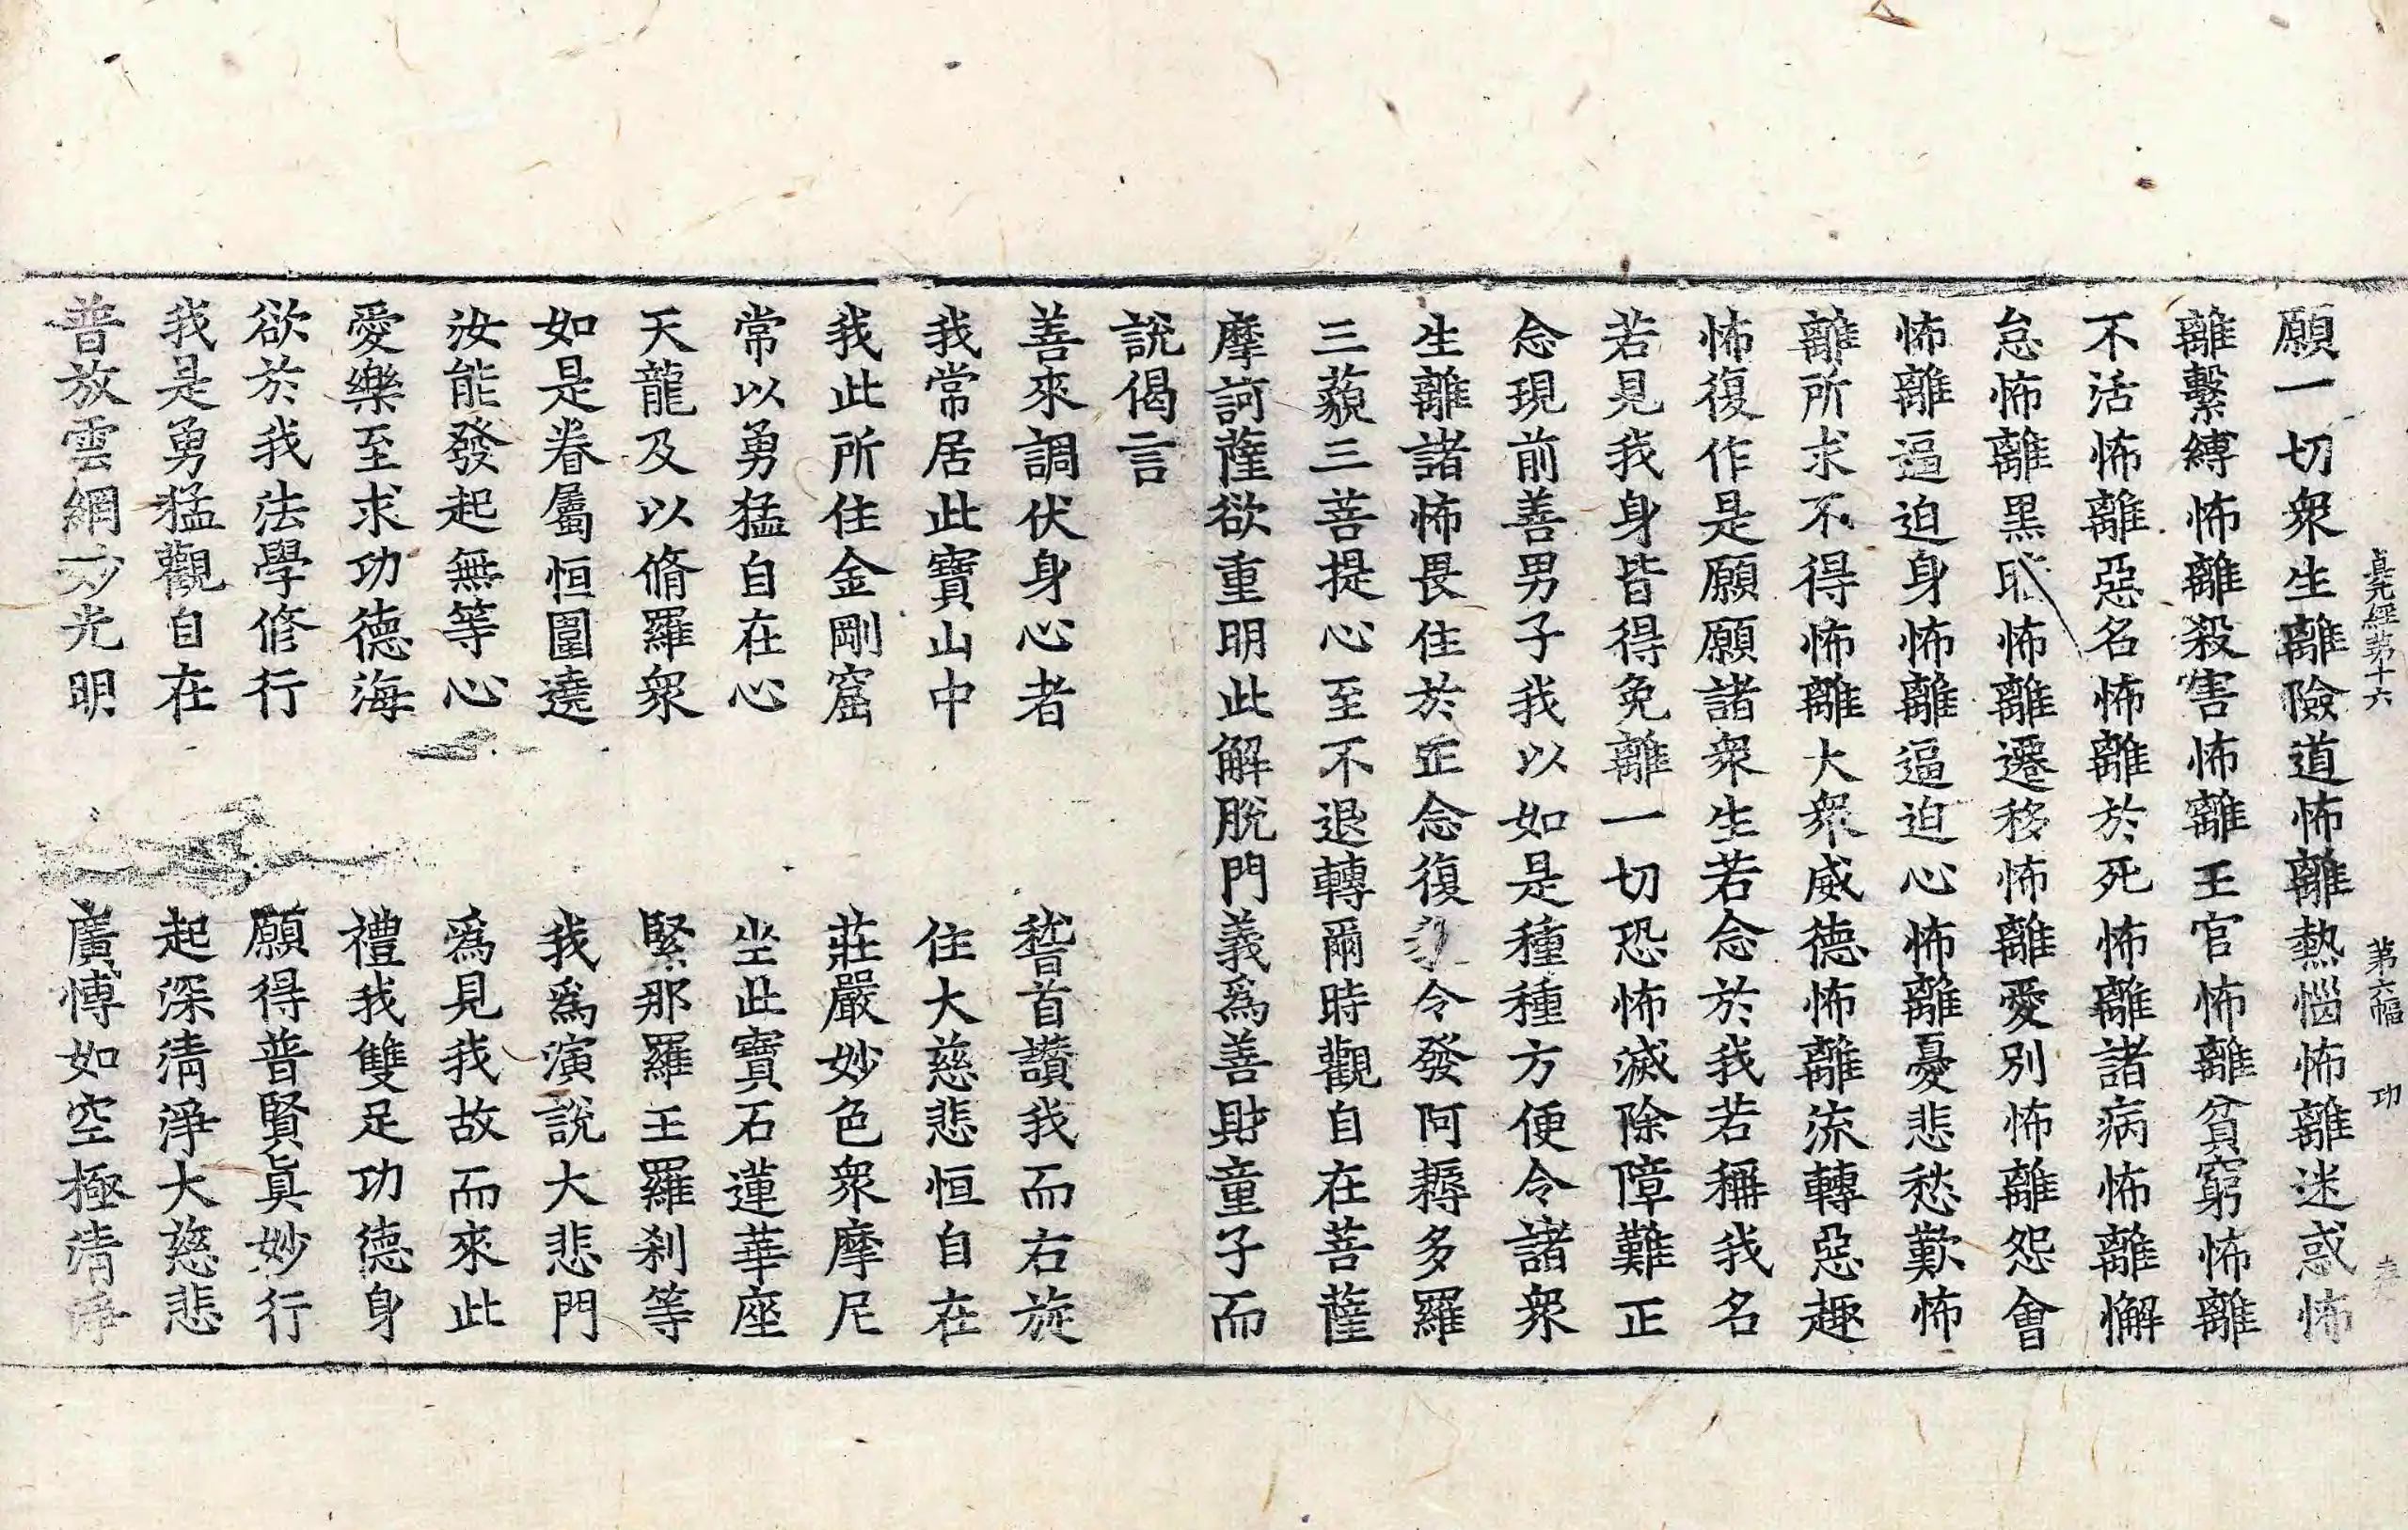 貞元經第十六 第六幅 功
願一切衆生離險道怖離熱惱怖離迷惑怖
離繫縛怖離殺害怖離王官怖離貧窮怖離
不活怖離惡名怖離於死怖離諸病怖離懈
怠怖離黑怖離遷移怖離愛別怖離怨會
怖離逼迫身怖離逼迫心怖離憂悲愁歎怖
離所求不得怖離大衆威德怖離流轉惡趣
怖復作是願願諸衆生若念於我若稱我名
若見我身皆得免離一切恐怖滅除障難正
念現前善男子我以如是種種方便令諸衆
生離諸怖畏住於正念復令發阿耨多羅
三藐三菩提心至不退轉爾時觀自在菩薩
摩訶薩欲重明此解脫門義爲善財童子而
說偈言
善來調伏身心者 稽首讚我而右旋
我常居此寶山中 住大慈悲恒自在
我此所住金剛窟 莊嚴妙色衆摩尼
常以勇猛自在心 坐此寶石蓮華座
天龍及以脩羅衆 緊那羅王羅刹等
如是眷屬恒圍遶 我爲演說大悲門
汝能發起無等心 爲見我故而來此
愛樂至求功德海 禮我雙足功德身
欲於我法學修行 願得普賢眞妙行
我是勇猛觀自在 起深淸淨大慈悲
普放雲網妙光明 廣愽如空極清淨